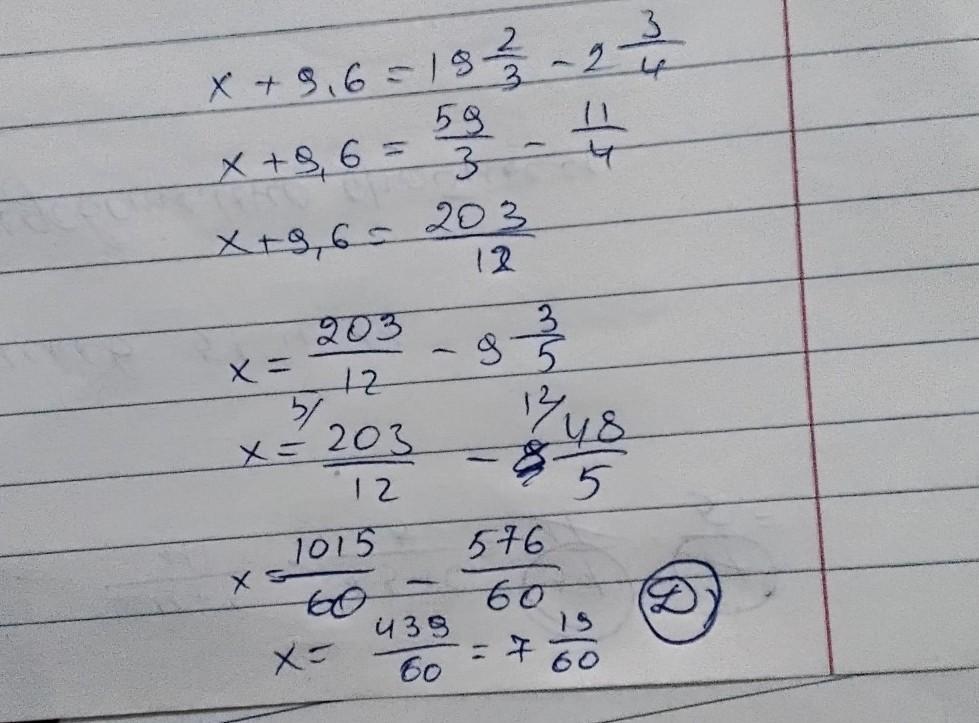 x + 9,6 = 19 2/3 - 2 3/4
x + 9,6 = 59/3 - 11/4
x + 9,6 = 203/12
x = 203/12 - 9 3/5
x = 5/ 203/12 - 12/ 48/5
x = 1015/60 - 576/60
x = 439/60 = 7 19/60 D)